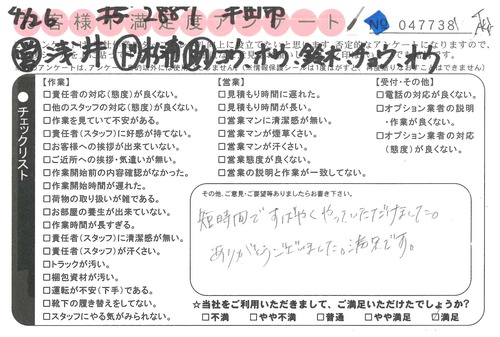 4/26
お客様不満足度アンケート
No 047738
チェックリスト
【作業】
□責任者の対応(態度)が良くない。
□他のスタッフの対応(態度)が良くない。
□作業を見ていて不安がある。
□責任者(スタッフ)に好感が持てない。
□お客様への挨拶が出来ていない。
□ご近所への挨拶・気遣いが無い。
□作業開始前の内容確認がなかった。
□作業開始時間が遅れた。
□荷物の取り扱いが雑である。
□お部屋の養生が出来ていない。
□作業時間が長すぎる。
□責任者(スタッフ)に清潔感が無い。
□責任者(スタッフ)が汗くさい。
□トラックが汚い。
□梱包資材が汚い。
□運転が不安(下手)である。
□靴下の履き替えをしてない。
□スタッフにやる気がみられない。
【営業】
□見積もり時間に遅れた。
□見積もり時間が長い。
□営業マンに清潔感が無い。
□営業マンが煙草くさい。
□営業マンが汗くさい。
□営業態度が良くない。
□営業の説明と作業が一致してない。
【受付・その他】
□電話の対応が良くない。
□オプション業者の説明・作業が良くない。
□オプション業者の対応(態度)が良くない。
その他、ご意見・ご要望等ありましたらお書き下さい。
短時間ですばやくやっていただけました。
ありがとうございました。満足です。
☆当社をご利用いただきまして、ご満足いただけたでしょうか?
□不満 □やや不満 □普通 □やや満足 ☑満足